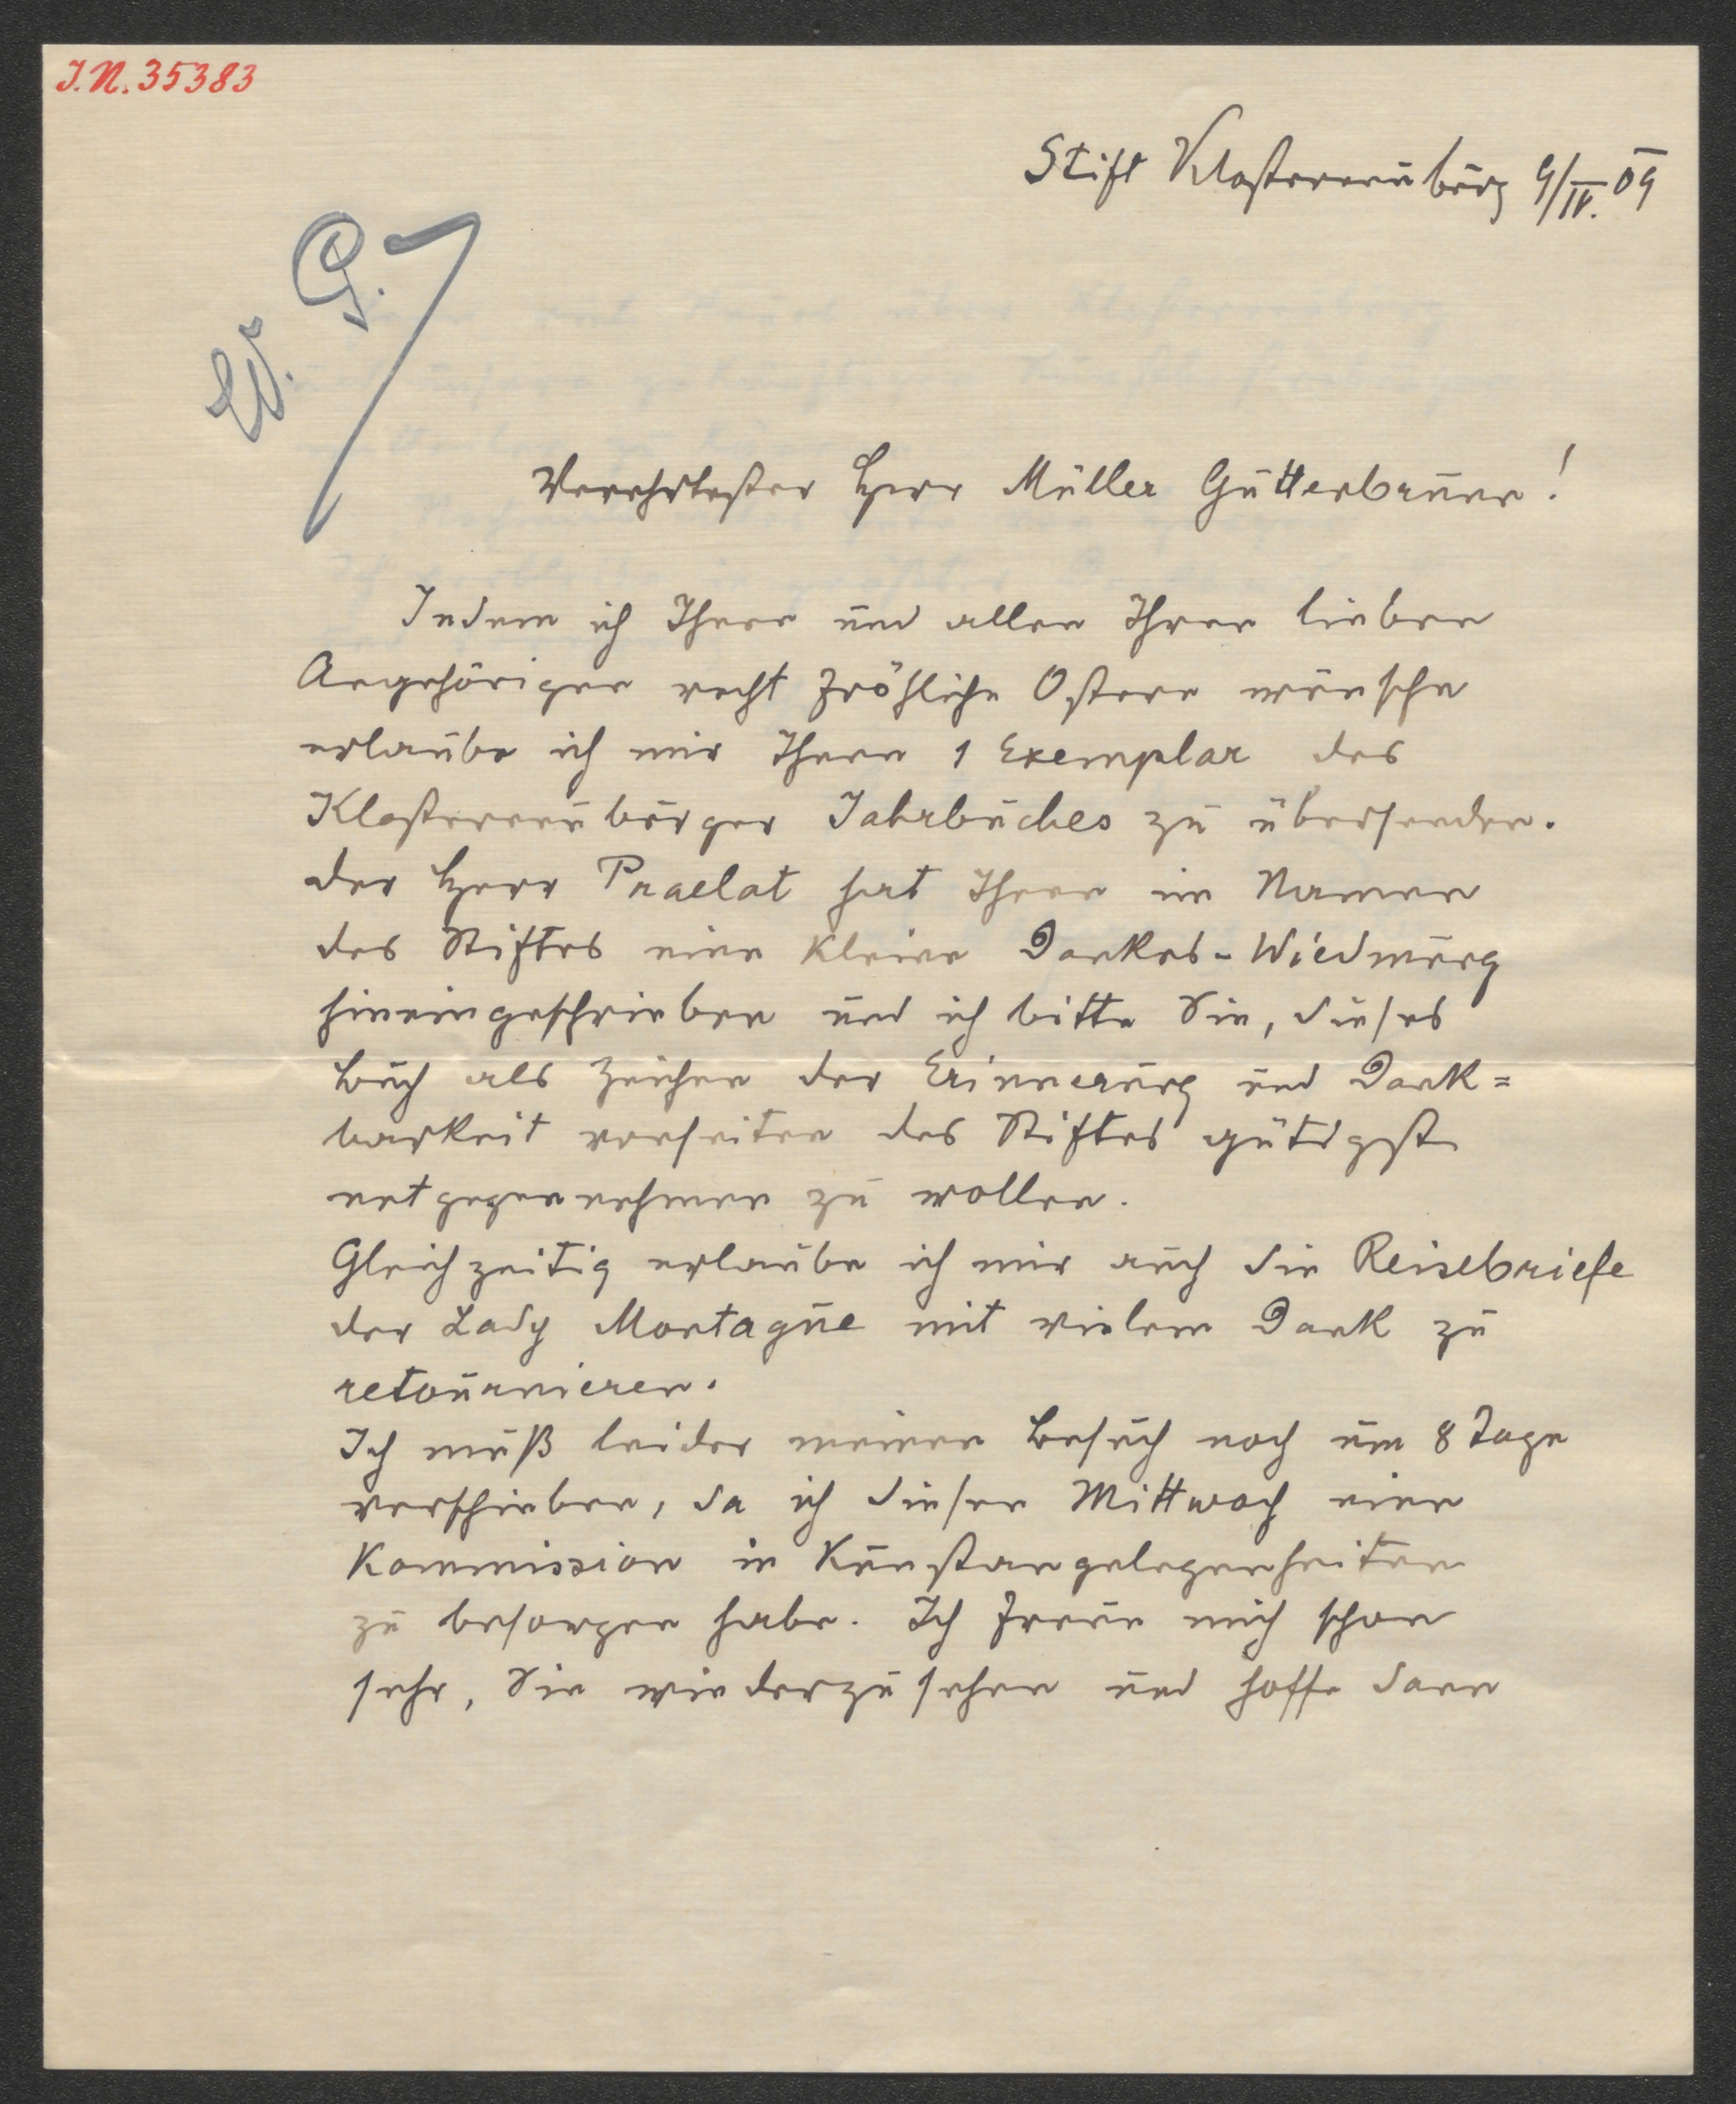 I.N. 35383
Stift Klosterneuburg 9/IV. 09
W. G.
Verehrtester Herr Müller Guttenbrunn!
Indem ich Ihnen und allen Ihren lieben
Angehörigen recht fröhliche Ostern wünsche
erlaube ich mir Ihnen 1 Exemplar des
Klosterneuburger Jahrbuches zu übersenden.
Der Herr Praelat hat Ihnen im Namen
des Stiftes eine kleine Dankes-Wiedmung
hineingeschrieben und ich bitte Sie, dieses
Buch als Zeichen der Erinnerung und Dank=
barkeit vonseiten des Stiftes gütigst
entgegennehmen zu wollen.
Gleichzeitig erlaube ich mir auch die Reisebriefe
der Lady Montague mit vielem Dank zu
retournieren.
Ich muß leider meinen Besuch noch um 8 Tage
verschieben, da ich diesen Mittwoch eine
Kommission in Kunstangelegenheiten
zu besorgen habe. Ich freue mich schon
sehr, Sie wiederzusehen und hoffe dann